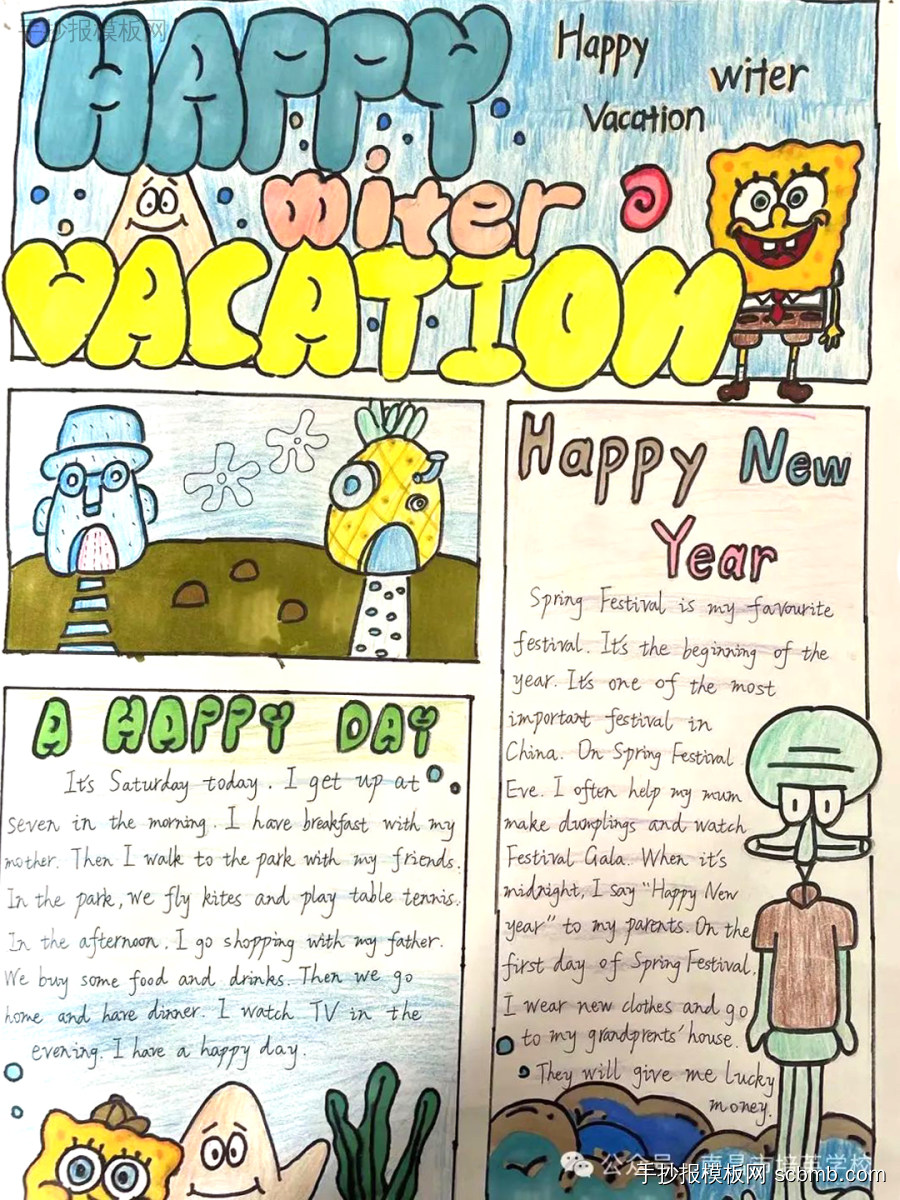 手抄报模板网
HAPPY
witer
VACATION
Happy
witer
Vacation
Happy New
Year
Spring Festival is my favourite
festival. It's the beginning of the
year. It's one of the most
important festival in
China. On Spring Festival
Eve. I often help my mum
make dumplings and watch
Festival Gala. When it's
midnight, I say "Happy New
year" to my parents. On the
first day of Spring Festival,
I wear new clothes and go
to my grandprents' house.
They will give me lucky
money.
A HAPPY DAY
It's Saturday today. I get up at
seven in the morning. I have breakfast with my
mother. Then I walk to the park with my friends.
In the park, we fly kites and play table tennis.
In the afternoon, I go shopping with my father.
We buy some food and drinks. Then we go
home and have dinner. I watch TV in the
evening. I have a happy day.
公众号 南昌市培英学校
手抄报模板网 scbmb.com